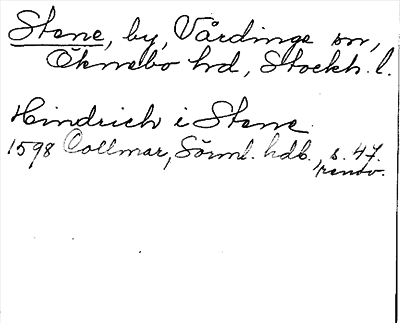 Stene, by, Vårdinge sn,
Öknebo hd, Stockh. l.
Hindrich i Stene
1598 Collmar, Sörml. hdb., s. 47.
renov.